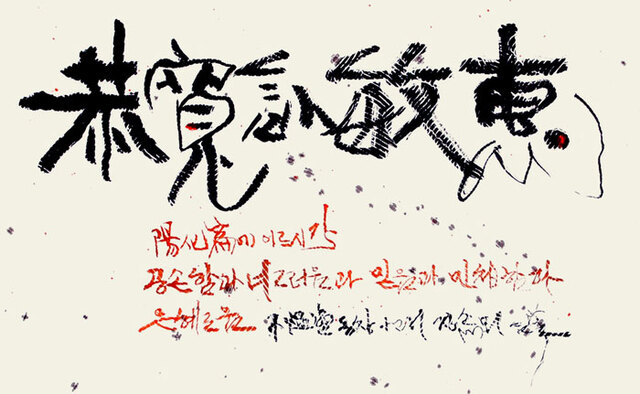 恭寬信敏惠
陽化篇에 이르시길
공손함과 너그러움과 믿음과 민첩함과
은혜로움